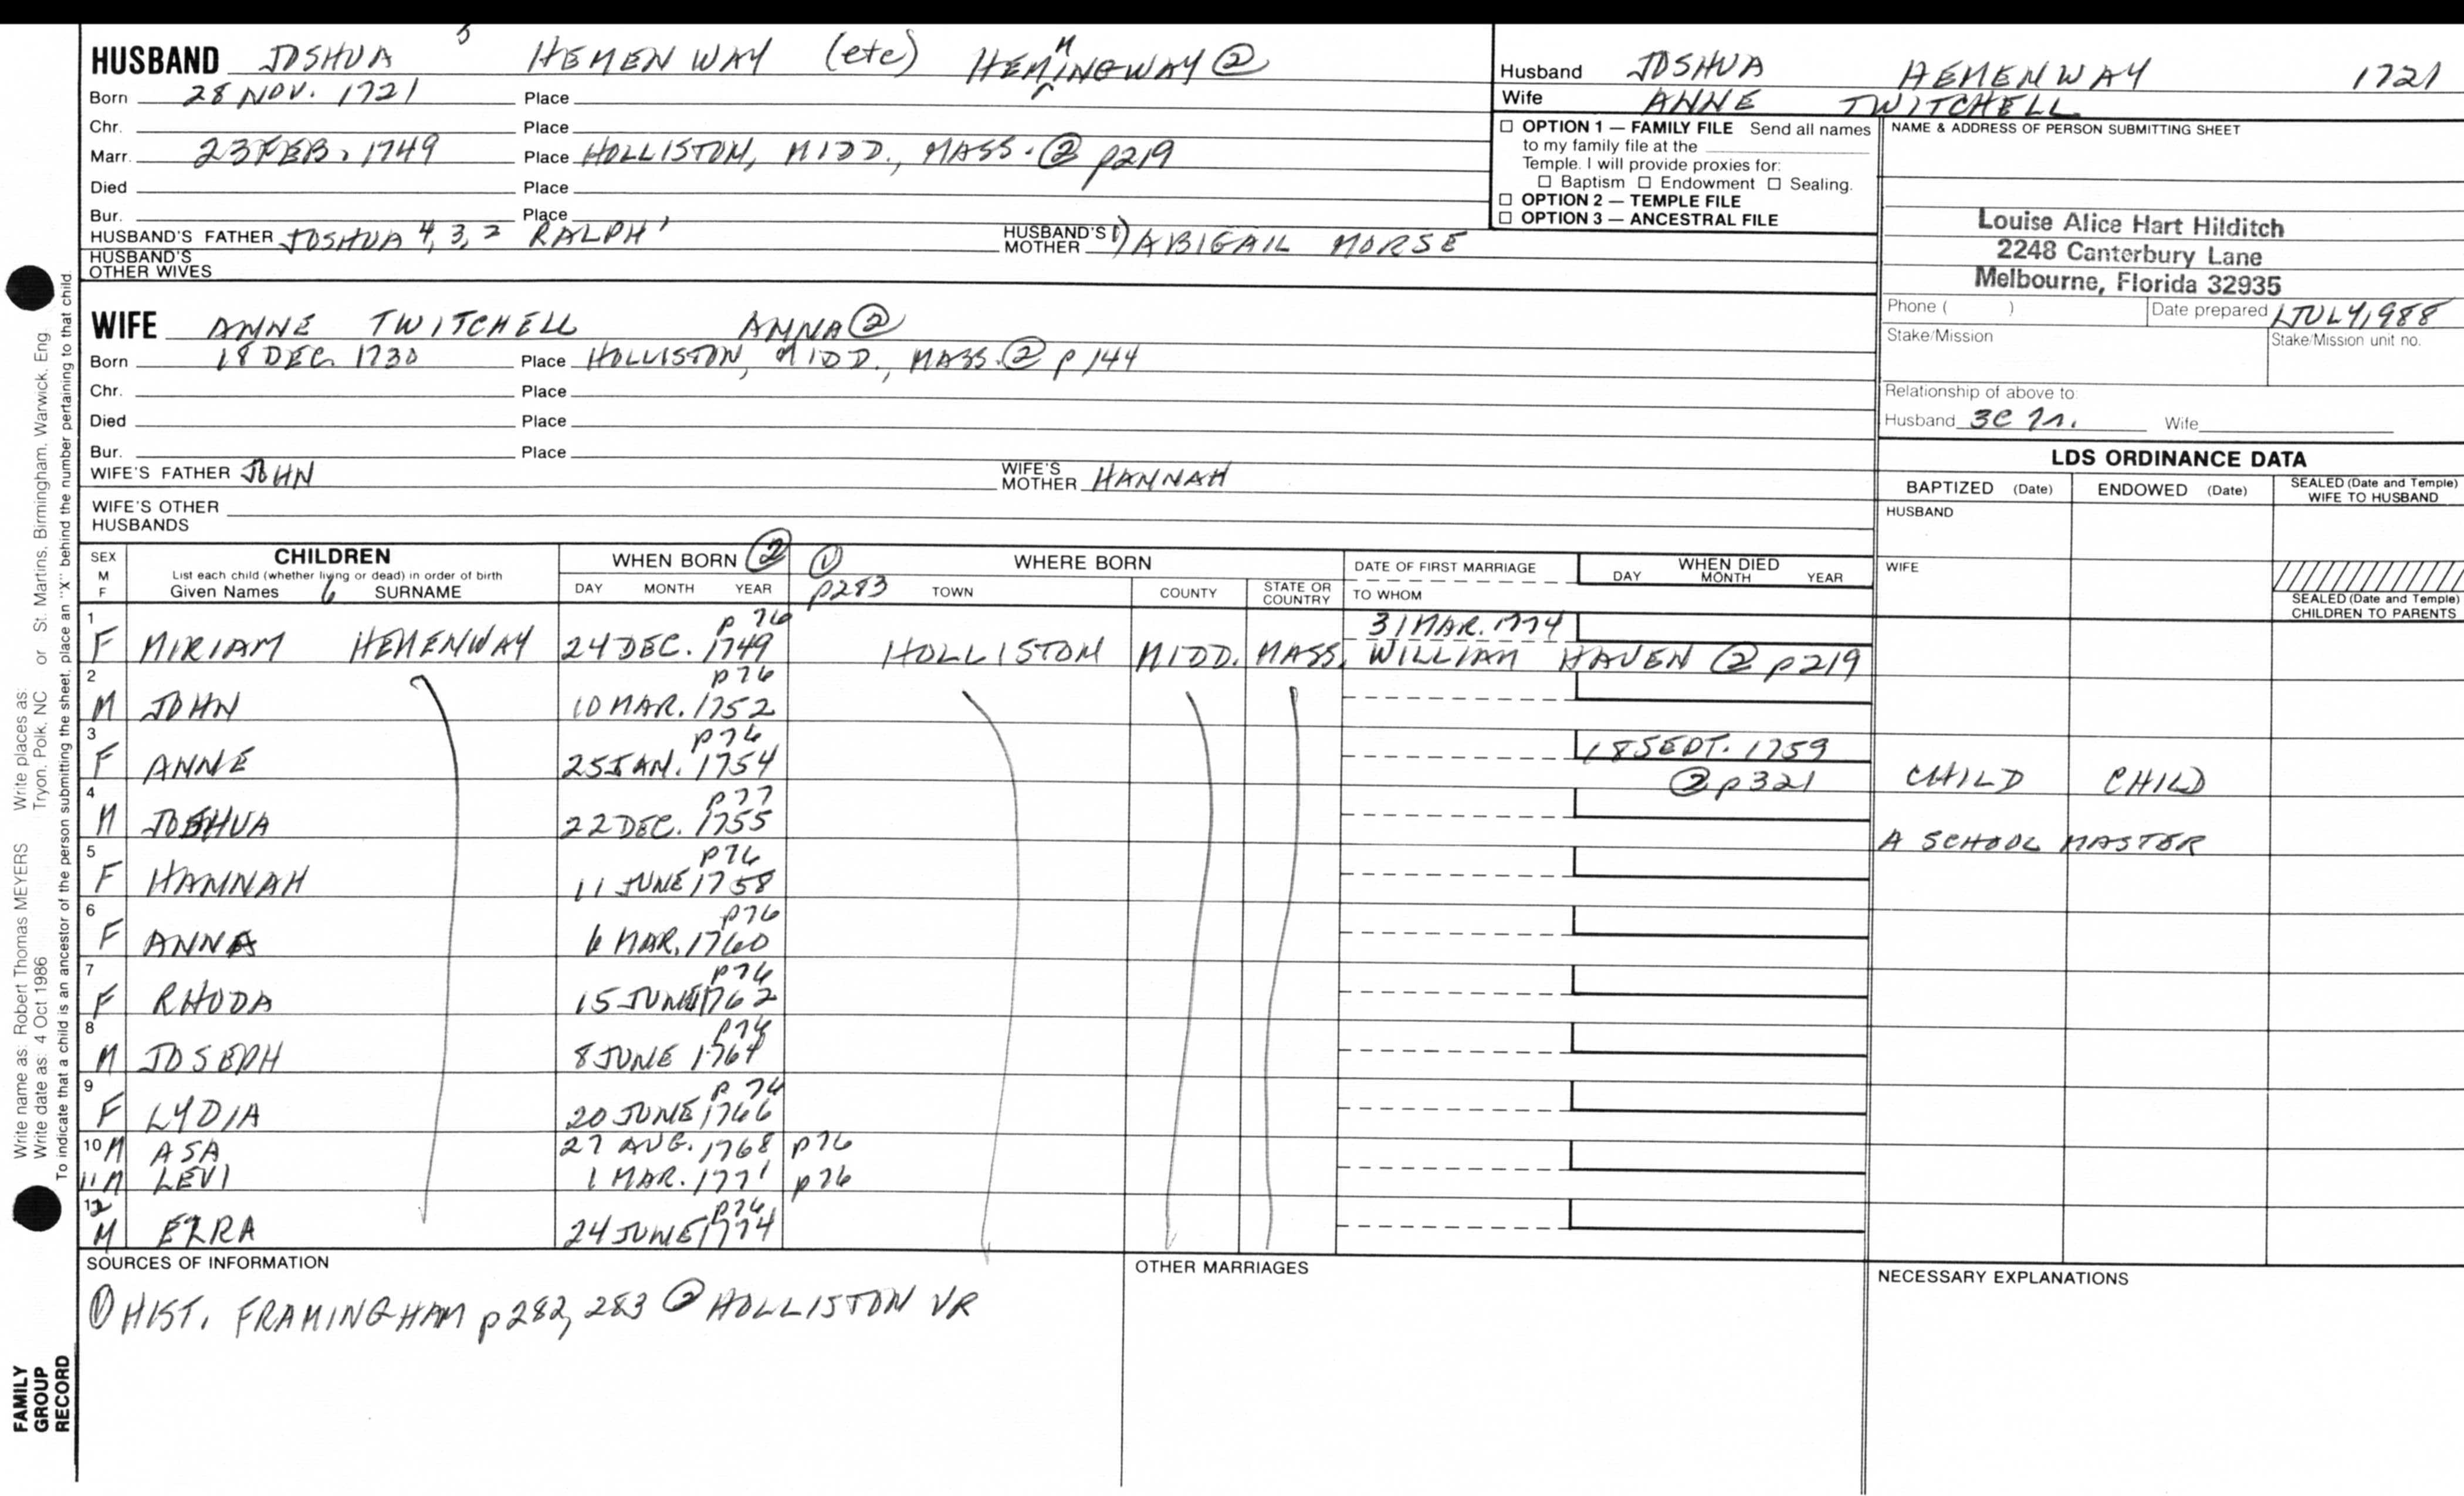 HUSBAND JOSHUA 5 HEMENWAY (etc) HEMMINGWAY ②
Born 28 NOV. 1721 Place
Chr. Place
Marr. 23 FEB. 1749 Place HOLLISTON, MIDD., MASS. ② p219
Died Place
Bur. Place
HUSBAND'S FATHER JOSHUA 4, 3, 2 RALPH 1 HUSBAND'S MOTHER 1) ABIGAIL MORSE
HUSBAND'S OTHER WIVES
WIFE ANNE TWITCHELL ANNA ②
Born 18 DEC. 1730 Place HOLLISTON, MIDD., MASS. ② p 144
Chr. Place
Died Place
Bur. Place
WIFE'S FATHER JOHN WIFE'S MOTHER HANNAH
WIFE'S OTHER HUSBANDS
Husband JOSHUA HEMENWAY 1721
Wife ANNE TWITCHELL
☐ OPTION 1 — FAMILY FILE Send all names
to my family file at the
Temple. I will provide proxies for:
☐ Baptism ☐ Endowment ☐ Sealing.
☐ OPTION 2 — TEMPLE FILE
☐ OPTION 3 — ANCESTRAL FILE
NAME & ADDRESS OF PERSON SUBMITTING SHEET
Louise Alice Hart Hilditch
2248 Canterbury Lane
Melbourne, Florida 32935
Phone ( ) Date prepared 1 JULY 1988
Stake/Mission Stake/Mission unit no.
Relationship of above to:
Husband 3C Wife
LDS ORDINANCE DATA
BAPTIZED (Date) ENDOWED (Date) SEALED (Date and Temple) WIFE TO HUSBAND
HUSBAND
WIFE
SEALED (Date and Temple) CHILDREN TO PARENTS
SEX M F CHILDREN WHEN BORN ② ① WHERE BORN DATE OF FIRST MARRIAGE WHEN DIED
List each child (whether living or dead) in order of birth
Given Names 6 SURNAME DAY MONTH YEAR p283 TOWN COUNTY STATE OR COUNTRY TO WHOM DAY MONTH YEAR
1 p 76 31 MAR. 1774
F MIRIAM HEMENWAY 24 DEC. 1749 HOLLISTON MIDD. MASS. WILLIAM HAVEN ② p219
2 p76
M JOHN 10 MAR. 1752
3 p76 18 SEPT. 1759
F ANNE 25 JAN. 1754 ② p321 CHILD CHILD
4 p77
M JOSHUA 22 DEC. 1755 A SCHOOL MASTER
5 p76
F HANNAH 11 JUNE 1758
6 p76
F ANNA 6 MAR. 1760
7 p76
F RHODA 15 JUNE 1762
8 p76
M JOSEPH 8 JUNE 1764
9 p 76
F LYDIA 20 JUNE 1766
10 M ASA 27 AUG. 1768 p76
11 M LEVI 1 MAR. 1771 p76
12 p76
M EZRA 24 JUNE 1774
SOURCES OF INFORMATION
① HIST. FRAMINGHAM p282, 283 ② HOLLISTON VR
OTHER MARRIAGES
NECESSARY EXPLANATIONS
Write name as: Robert Thomas MEYERS Write places as:
Write date as: 4 Oct 1986 Tryon, Polk, NC or St. Martins, Birmingham, Warwick, Eng
To indicate that a child is an ancestor of the person submitting the sheet, place an "X" behind the number pertaining to that child
FAMILY
GROUP
RECORD